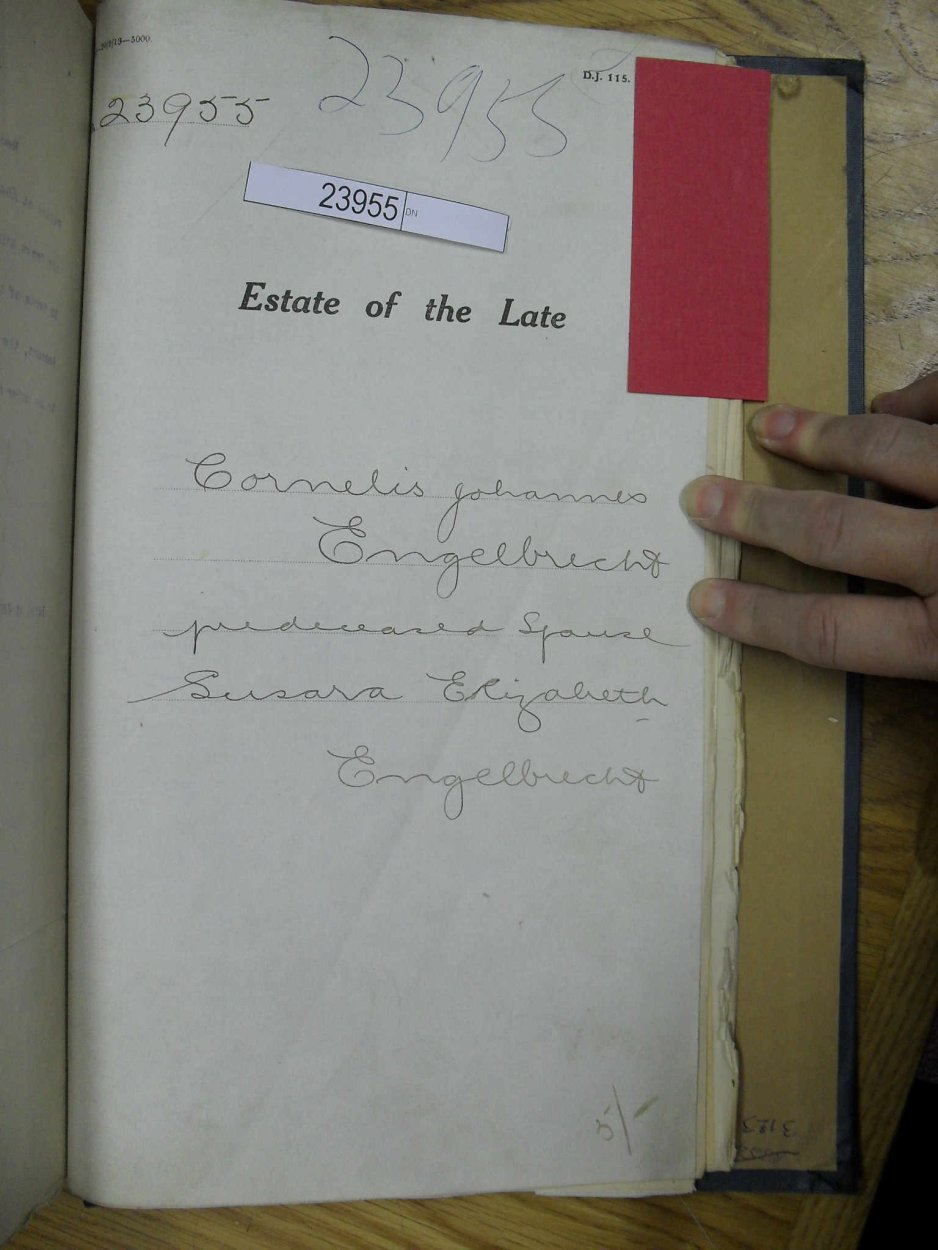 D.J. 115.
23955
23955
23955 DN
Estate of the Late
Cornelis Johannes
Engelbrecht
predeceased Spouse
Susara Elizabeth
Engelbrecht
5/-
3123